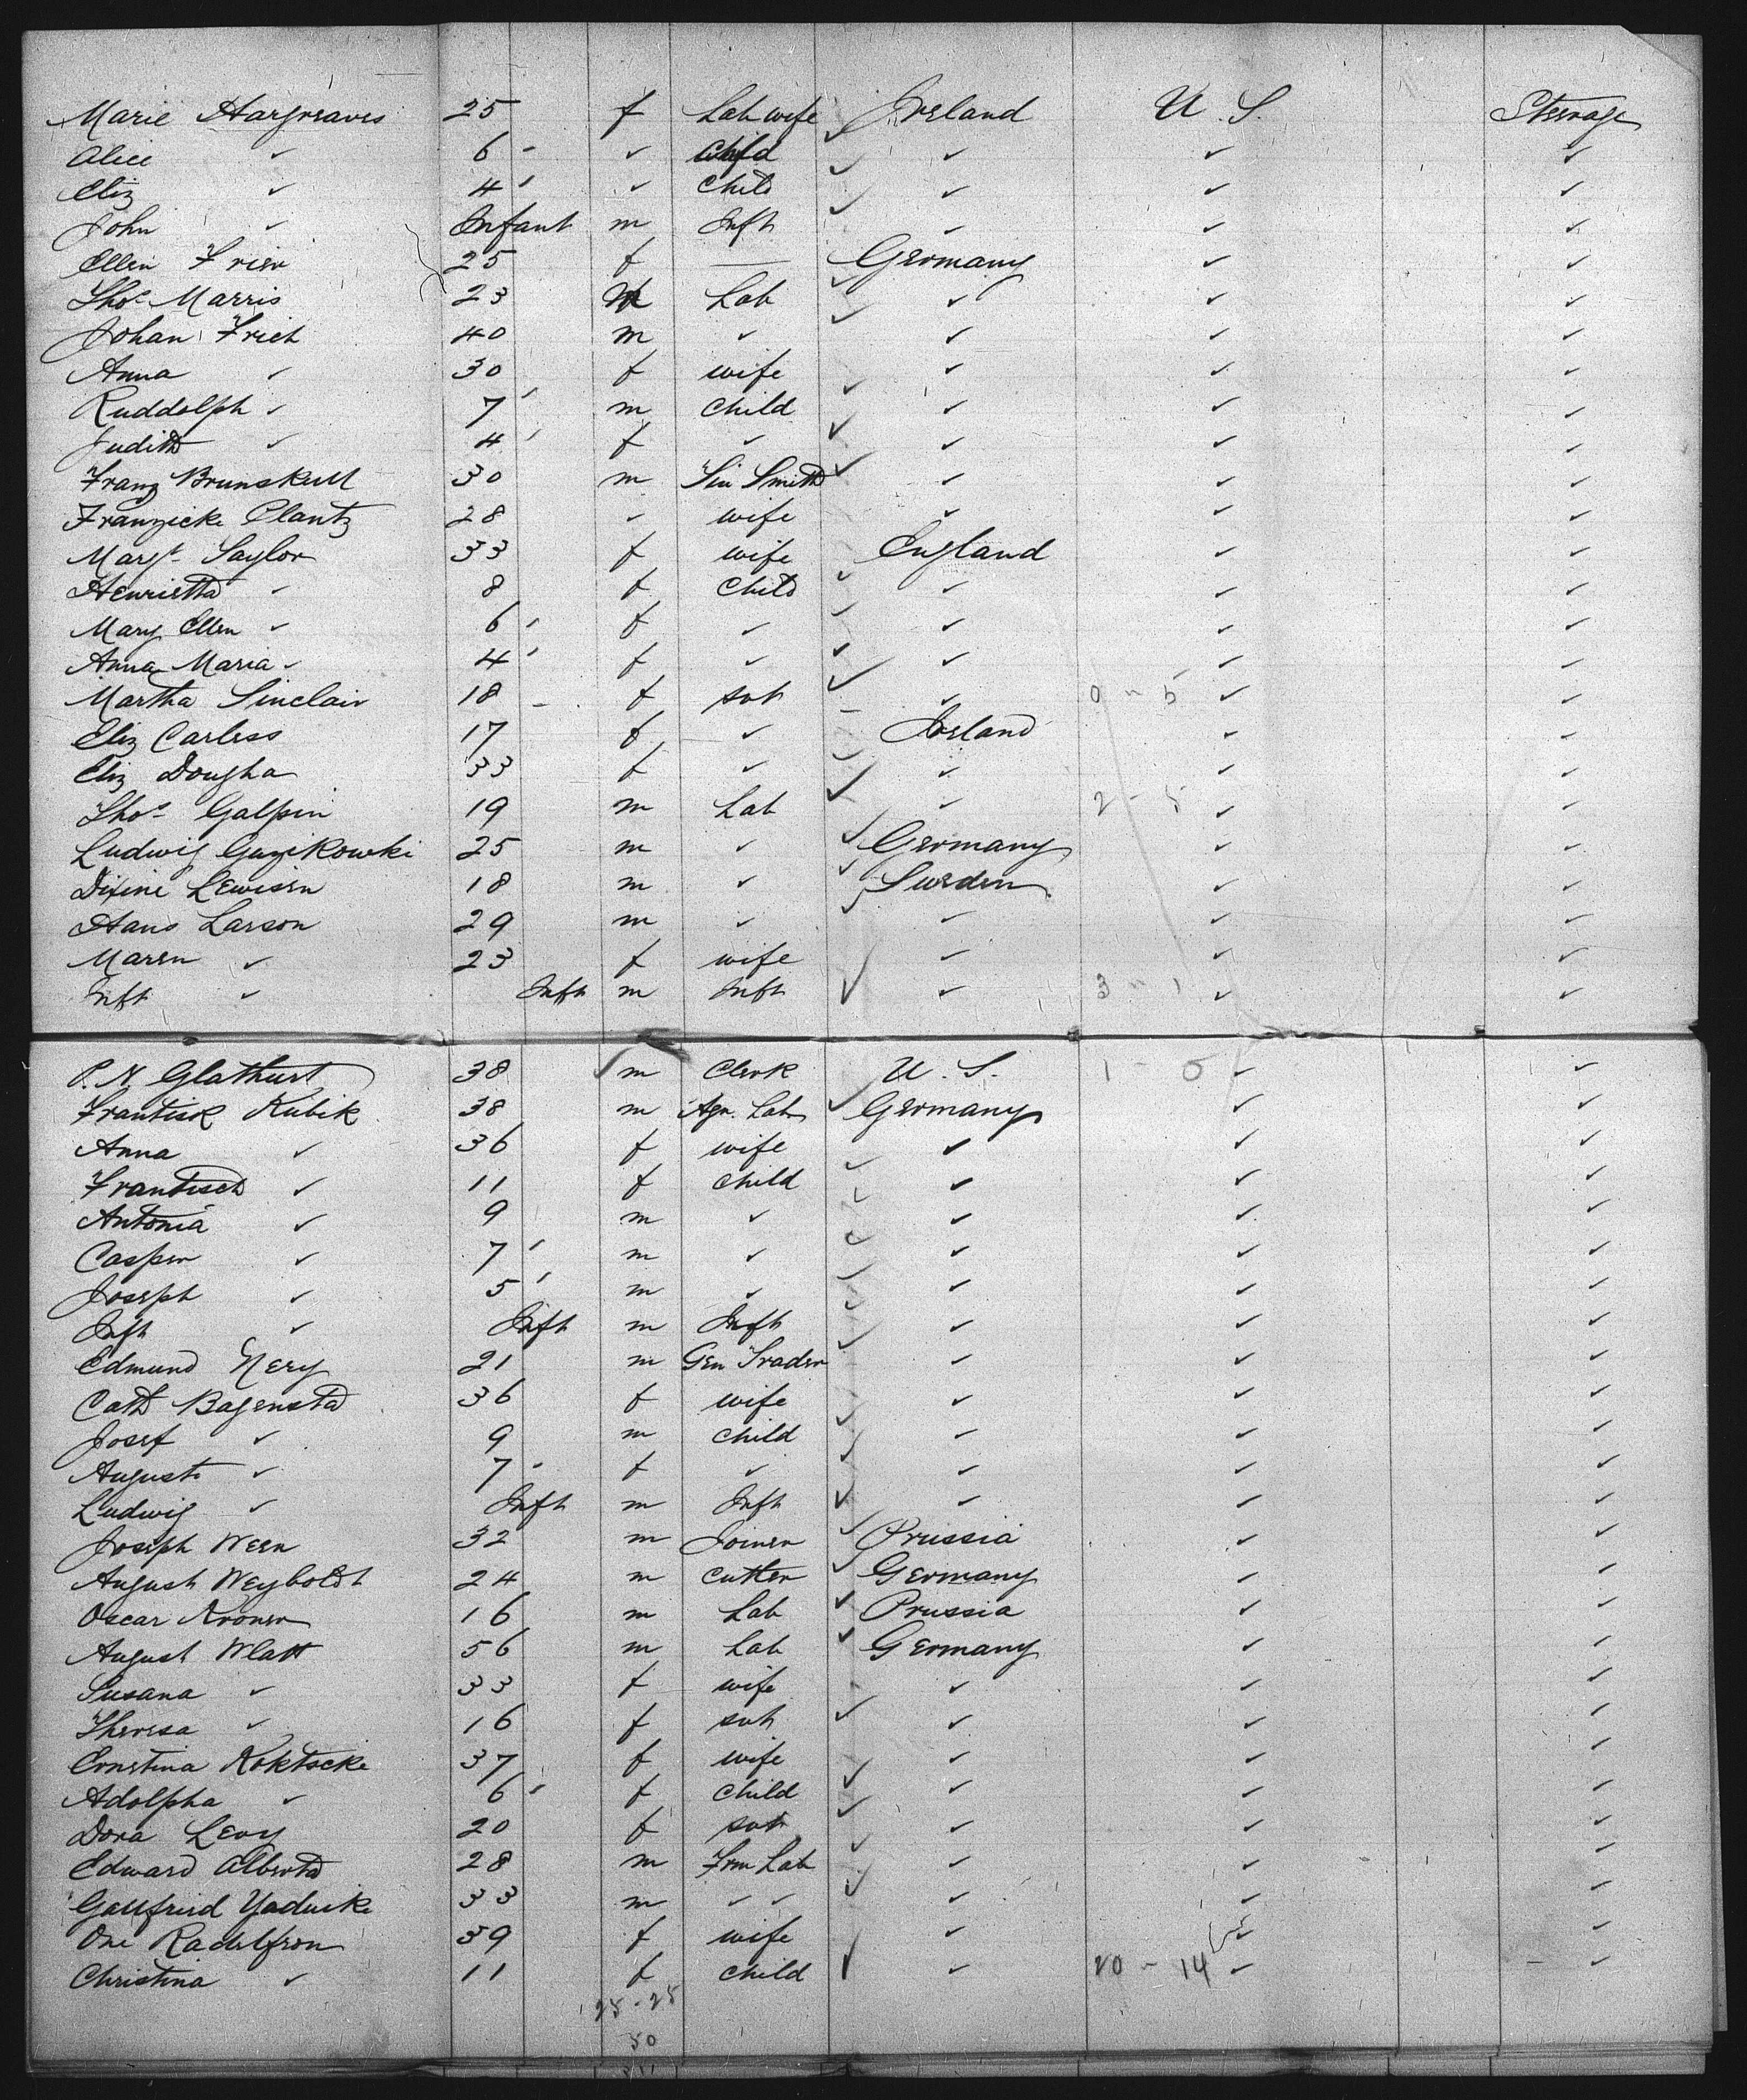 Marie Hargreaves 25 f Lab wife Ireland U. S. Steerage
Alice ✓ 6 ✓ Child ✓ ✓ ✓
Eliz ✓ 4 ✓ Child ✓ ✓ ✓
John ✓ Infant m Inft ✓ ✓ ✓
Ellen Frier 25 f — Germany ✓ ✓
Thos Marris 23 M Lab ✓ ✓ ✓
Johan Frich 40 m ✓ ✓ ✓ ✓
Anna ✓ 30 f wife ✓ ✓ ✓
Ruddolph ✓ 7 m Child ✓ ✓ ✓
Judith ✓ 4 f ✓ ✓ ✓ ✓
Franz Brunskull 30 m Tin Smith ✓ ✓ ✓
Franzicke Clantz 28 ✓ wife ✓ ✓ ✓
Margt Taylor 33 f wife England ✓ ✓
Henrietta ✓ 8 f Child ✓ ✓ ✓
Mary Ellen ✓ 6 f ✓ ✓ ✓ ✓
Anna Maria ✓ 4 f ✓ ✓ ✓ ✓
Martha Sinclair 18 f svt ✓ ✓ ✓
Eliz Carless 17 f ✓ Ireland ✓ ✓
Eliz Dougha 33 f ✓ ✓ ✓ ✓
Thos Galpin 19 m Lab ✓ 2 - 5 ✓ ✓
Ludwig Guzikowki 25 m ✓ Germany ✓ ✓
Lewisen 18 m ✓ Sweden ✓ ✓
Hans Larson 29 m ✓ ✓ ✓ ✓
Maren ✓ 23 f wife ✓ ✓ ✓
Inft ✓ Inft m Inft ✓ 3 - 1 ✓ ✓
P. N. Glathurt 38 m Clerk U. S. 1 - 0 ✓ ✓
Frantisk Kubik 38 m Agr. Lab Germany ✓ ✓
Anna ✓ 36 f wife ✓ ✓ ✓
Frantisch ✓ 11 f child ✓ ✓ ✓
Antonia ✓ 9 m ✓ ✓ ✓ ✓
Casper ✓ 7 m ✓ ✓ ✓ ✓
Joseph ✓ 5 m ✓ ✓ ✓ ✓
Inft ✓ Inft m Inft ✓ ✓ ✓
Edmund Nery 21 m Gen Trader ✓ ✓ ✓
Cath Bagensta 36 f wife ✓ ✓ ✓
Josef ✓ 9 m child ✓ ✓ ✓
August ✓ 7 f ✓ ✓ ✓ ✓
Ludwig ✓ Inft m Inft ✓ ✓ ✓
Joseph Ween 32 m Joiner Prussia ✓ ✓
August Weyboldt 24 m Cutter Germany ✓ ✓
Oscar Kroner 16 m Lab Prussia ✓ ✓
August Wlatt 56 m Lab Germany ✓ ✓
Susana ✓ 33 f wife ✓ ✓ ✓
Theresa ✓ 16 f svt ✓ ✓ ✓
Ernstina Koktscke 37 f wife ✓ ✓ ✓
Adolpha ✓ 6 f child ✓ ✓ ✓
Dora Levy 20 f svt ✓ ✓ ✓
Edward Alberta 28 m Frm Lab ✓ ✓ ✓
Gallfried Yaduike 33 m ✓ ✓ ✓ ✓ ✓
One Radelfson 39 f wife ✓ ✓ ✓
Christina ✓ 11 f child ✓ 20 - 14 ✓ ✓
25 - 25
50